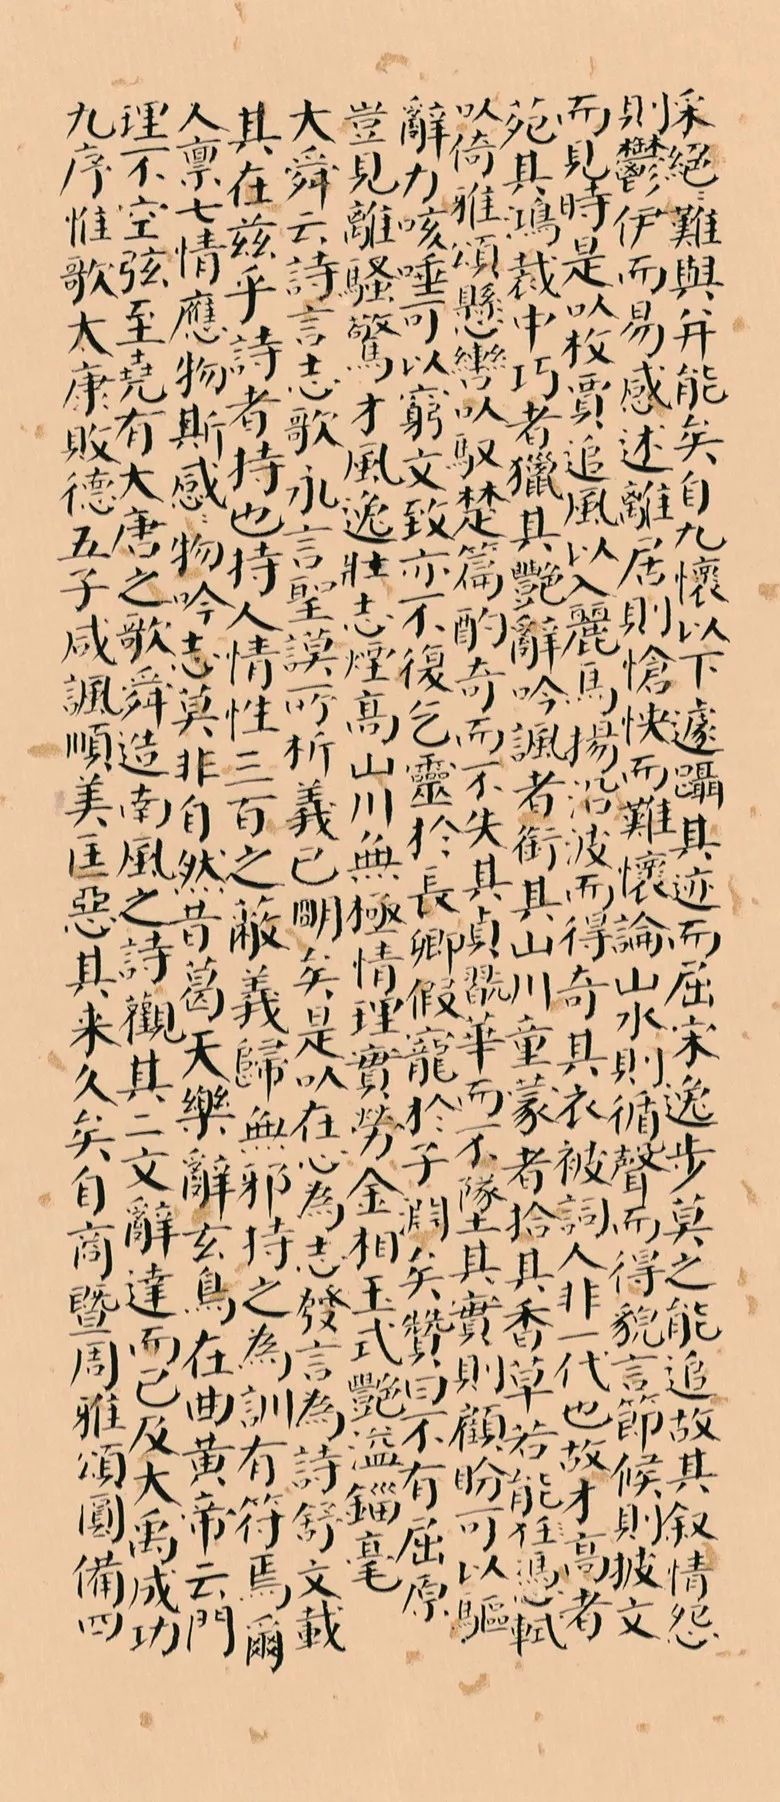 采絕〻難與并能矣自九懷以下遽躡其迹而屈宋逸步莫之能追故其叙情怨
則鬱伊而易感述離居則愴怏而難懷論山水則循聲而得貌言節候則披文
而見時是以枚賈追風以入麗馬揚沿波而得奇其衣被詞人非一代也故才高者
苑其鴻裁中巧者獵其艷辭吟諷者銜其山川童蒙者拾其香草若能憑軾
以倚雅頌懸轡以馭楚篇酌奇而不失其貞翫華而不墜其實則顧盼可以驅
辭力咳唾可以窮文致亦不復乞靈於長卿假寵於子淵矣贊曰不有屈原
豈見離騷驚才風逸壯志煙高山川無極情理實勞金相玉式艷溢錙毫
大舜云詩言志歌永言聖謨所析義已明矣是以在心為志發言為詩舒文載
其在茲乎詩者持也持人情性三百之蔽義歸無邪持之為訓有符焉爾
人禀七情應物斯感〻物吟志莫非自然昔葛天樂辭玄鳥在曲黃帝云門
理不空弦至堯有大唐之歌舜造南風之詩觀其二文辭達而已及大禹成功
九序惟歌太康敗德五子咸諷順美匡惡其来久矣自商暨周雅頌圓備四